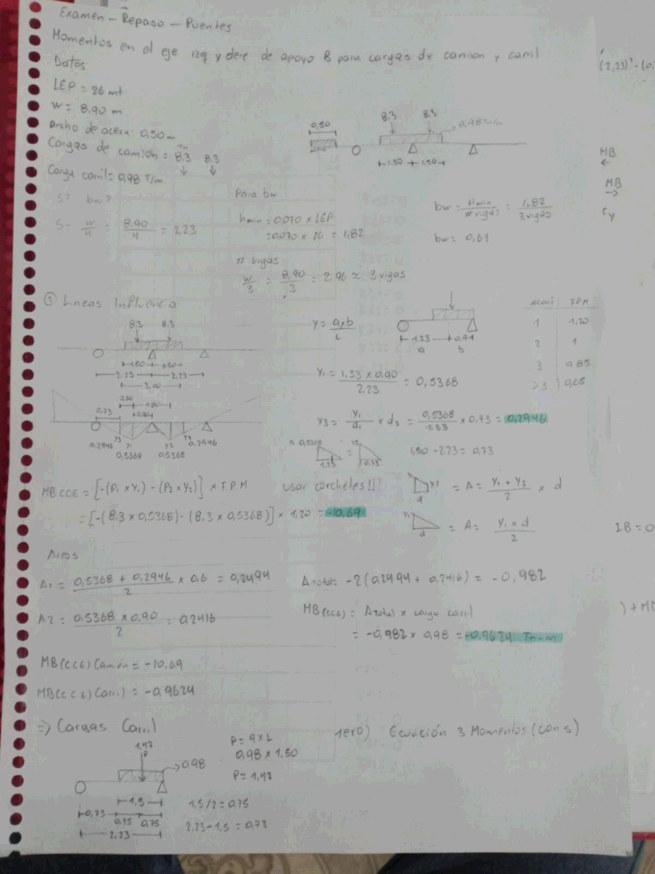 Examen - Repaso - Puentes
Momentos en el eje izq y dere de apoyo B para cargas de camion y carril
Datos
LEP = 26 mt
W = 8.90 m
Ancho de acera: 0,50 m
Cargas de camión = 8.3 8.3
Carga carril = 0,98 T/m
0,50
8.3 8.3
0,98 Tn/m
1.50 1.50
S? bw?
S = W/4 = 8.90/4 = 2.23
Para bw
hmin = 0.070 x LEP
= 0.070 x 26 = 1,82
bw = Hmin/# vigas = 1,82/3 vigas
bw = 0,61
# vigas
W/3 = 8,90/3 = 2.96 ≈ 3 vigas
① Lineas Influencia
8.3 8.3
2.23 2.23
0.73
0,2946 0,5368 0,5368 0,2946
y = axb/L
1.33 0.9
a b
y1 = 1,33 x 0,90/2.23 = 0,5368
y3 = y1/d1 x d3 = 0,5368/1.33 x 0.73 = 0,2946
1,50 - 2.23 = 0,73
#carril T.P.M
1 1.20
2 1
3 0,85
>3 0,65
MB CCE = [-(P1 x Y1) - (P2 x Y2)] x T.P.M usar corchetes!!!
= [-(8.3 x 0,5368) - (8.3 x 0,5368)] x 1.20 = -10,69
A = y1 + y3/2 x d
A = y1 x d/2
Areas
A1 = 0,5368 + 0,2946/2 x 0,6 = 0,2494
A2 = 0.5368 x 0.90/2 = 0,2416
Atotal = -2(0.2494 + 0,2416) = -0,982
MB(CCE) = Atotal x carga carril
= -0,982 x 0,98 = -0,9624 Tn-m
MB(CCE) Camión = -10,69
MB(CCE) Carril = -0,9624
=> Cargas Carril
1,47
P
0.98
1,5
0,73 0,75 0,75
2.23
P = q x L
0,98 x 1,50
P = 1,47
1.5/2 = 0.75
2.23 - 1.5 = 0.73
1ero) Ecuación 3 Momentos (con s)
MB
MB